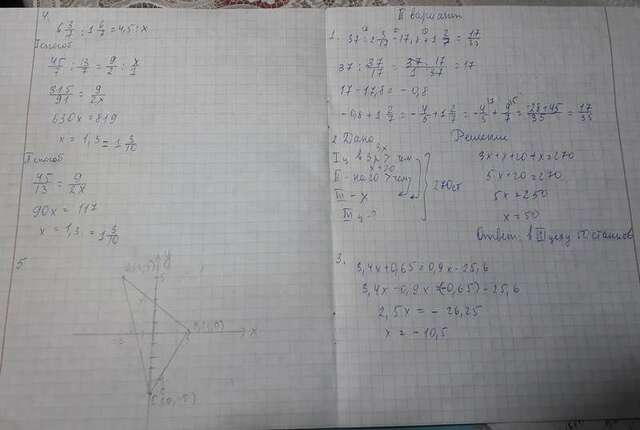 4.
6 3/7 : 1 6/7 = 4,5 : x
I способ
45/7 : 13/7 = 9/2 : x/1
315/91 = 9/2x
630x = 819
x = 1,3 = 1 3/10
II способ
45/13 = 9/2x
90x = 117
x = 1,3 = 1 3/10
5.
y
x
II вариант
1. 37 : 2 3/17 - 17,8 + 1 2/7 = 17/35
37 : 37/17 = 37/1 · 17/37 = 17
17 - 17,8 = - 0,8
-0,8 + 1 2/7 = - 4/5 + 1 2/7 = - 4/5 + 9/7 = -28+45/35 = 17/35
2 Дано
Решение
3x
I ц в 3р > чем
x+20
II - на 20 > чем
III - x
270 ст
III ц - ?
3x + x + 20 + x = 270
5x + 20 = 270
5x = 250
x = 50
Ответ: в III цеху 50 станков
3.
3,4x + 0,65 = 0,9x - 25,6
3,4x - 0,9x = (-0,65) - 25,6
2,5x = - 26,25
x = - 10,5